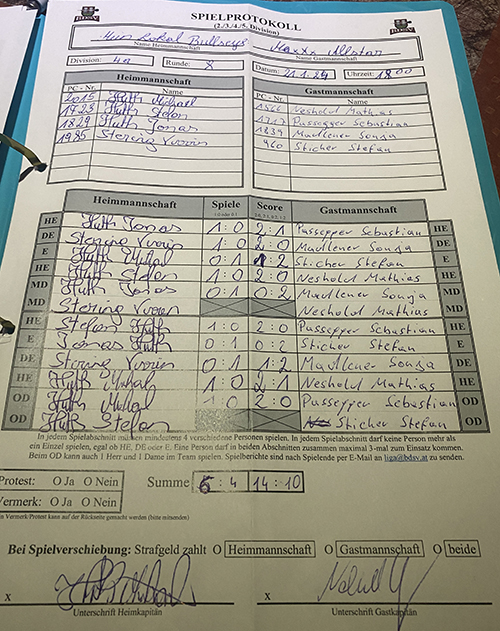 BDSV
SPIELPROTOKOLL
BDSV
(2./3./4./5. Division)
Mein Lokal Bullseys Maxxx Allstar
Name Heimmannschaft Name Gastmannschaft
Division: 4a Runde: 8 Datum: 21.1.24 Uhrzeit: 18:00
Heimmannschaft Gastmannschaft
PC - Nr. Name PC - Nr. Name
2015 Huth Michael 1546 Neshold Mathias
1723 Huth Stefan 1717 Passepper Sebastian
1829 Huth Jonas 1839 Maullener Sonja
1985 Stering Vivien 960 Sticher Stefan
Heimmannschaft Spiele Score Gastmannschaft
HE Huth Jonas 1:0 2:1 Passepper Sebastian HE
DE Stering Vivien 1:0 2:0 Maullener Sonja DE
E Huth Michael 0:1 1:2 Sticher Stefan E
HE Huth Stefan 1:0 2:0 Neshold Mathias HE
MD Huth Jonas 0:1 0:2 Maullener Sonja MD
MD Stering Vivien Neshold Mathias MD
HE Stefan Huth 1:0 2:0 Passepper Sebastian HE
E Jonas Huth 0:1 0:2 Sticher Stefan E
DE Stering Vivien 0:1 1:2 Maullener Sonja DE
HE Huth Michael 1:0 2:1 Neshold Mathias HE
OD Huth Michael 1:0 2:0 Passepper Sebastian OD
OD Huth Stefan Sticher Stefan OD
In jedem Spielabschnitt müssen mindestens 4 verschiedene Personen spielen. In jedem Spielabschnitt darf keine Person mehr als
ein Einzel spielen, egal ob HE, DE oder E. Eine Person darf in beiden Abschnitten zusammen maximal 3-mal zum Einsatz kommen.
Beim OD kann auch 1 Herr und 1 Dame im Team spielen. Spielberichte sind nach Spielende per E-Mail an liga@bdsv.at zu senden.
Protest: O Ja O Nein Summe 6:4 14:10
Vermerk: O Ja O Nein
Ein Vermerk/Protest kann auf der Rückseite gemacht werden (bitte mitsenden)
Bei Spielverschiebung: Strafgeld zahlt O Heimmannschaft O Gastmannschaft O beide
x x
Unterschrift Heimkapitän Unterschrift Gastkapitän